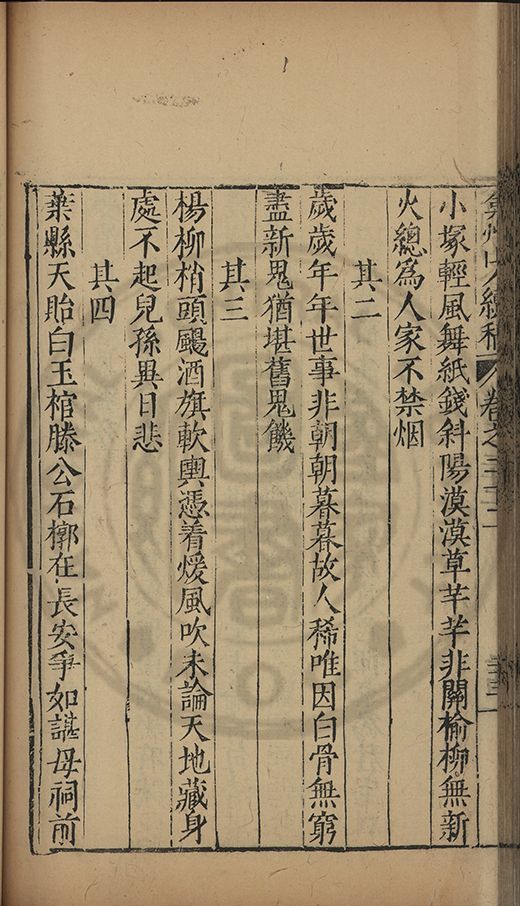 弇州山人續稿 卷之
小塚輕風舞紙錢斜陽漠漠草芊芊非關榆柳無新
火總為人家不禁烟
其二
歲歲年年世事非朝朝暮暮故人稀唯因白骨無窮
盡新鬼猶堪舊鬼饑
其三
楊柳梢頭颺酒旗軟輿憑着煖風吹未論天地藏身
處不起兒孫異日悲
其四
葉縣天貽白玉棺滕公石槨在長安爭如諶母祠前